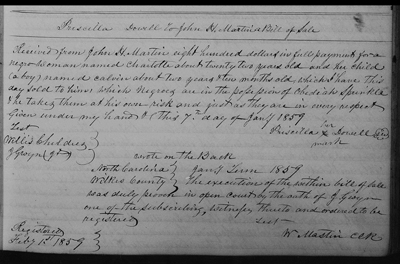 Priscilla Dowell to John H. Martin Bill of Sale
Received from John H. Martin eight hundred dollars in full payment for a
negro woman named Charlotte about twenty two years old and her child
(a boy) named Calvin about two years & two months old which I have this
day sold to him, which Negroes are in the possession of Obediah Sprinkle
& he takes them at his own risk and just as they are in every respect
Given under my hand & this 7th day of Jany 1859
Test
her
Priscilla X Dowell
mark
Willis Childres
J Gwyn (Jr)
wrote on the Back
North Carolina } Jany Term 1859
Wilkes County } The execution of the within bill of sale
was duly proven in open court by the oath of J Gwyn
one of the subscribing witness thereto and ordered to be
registered Test
W Mastin CCK
Registered
Feby 15 1859